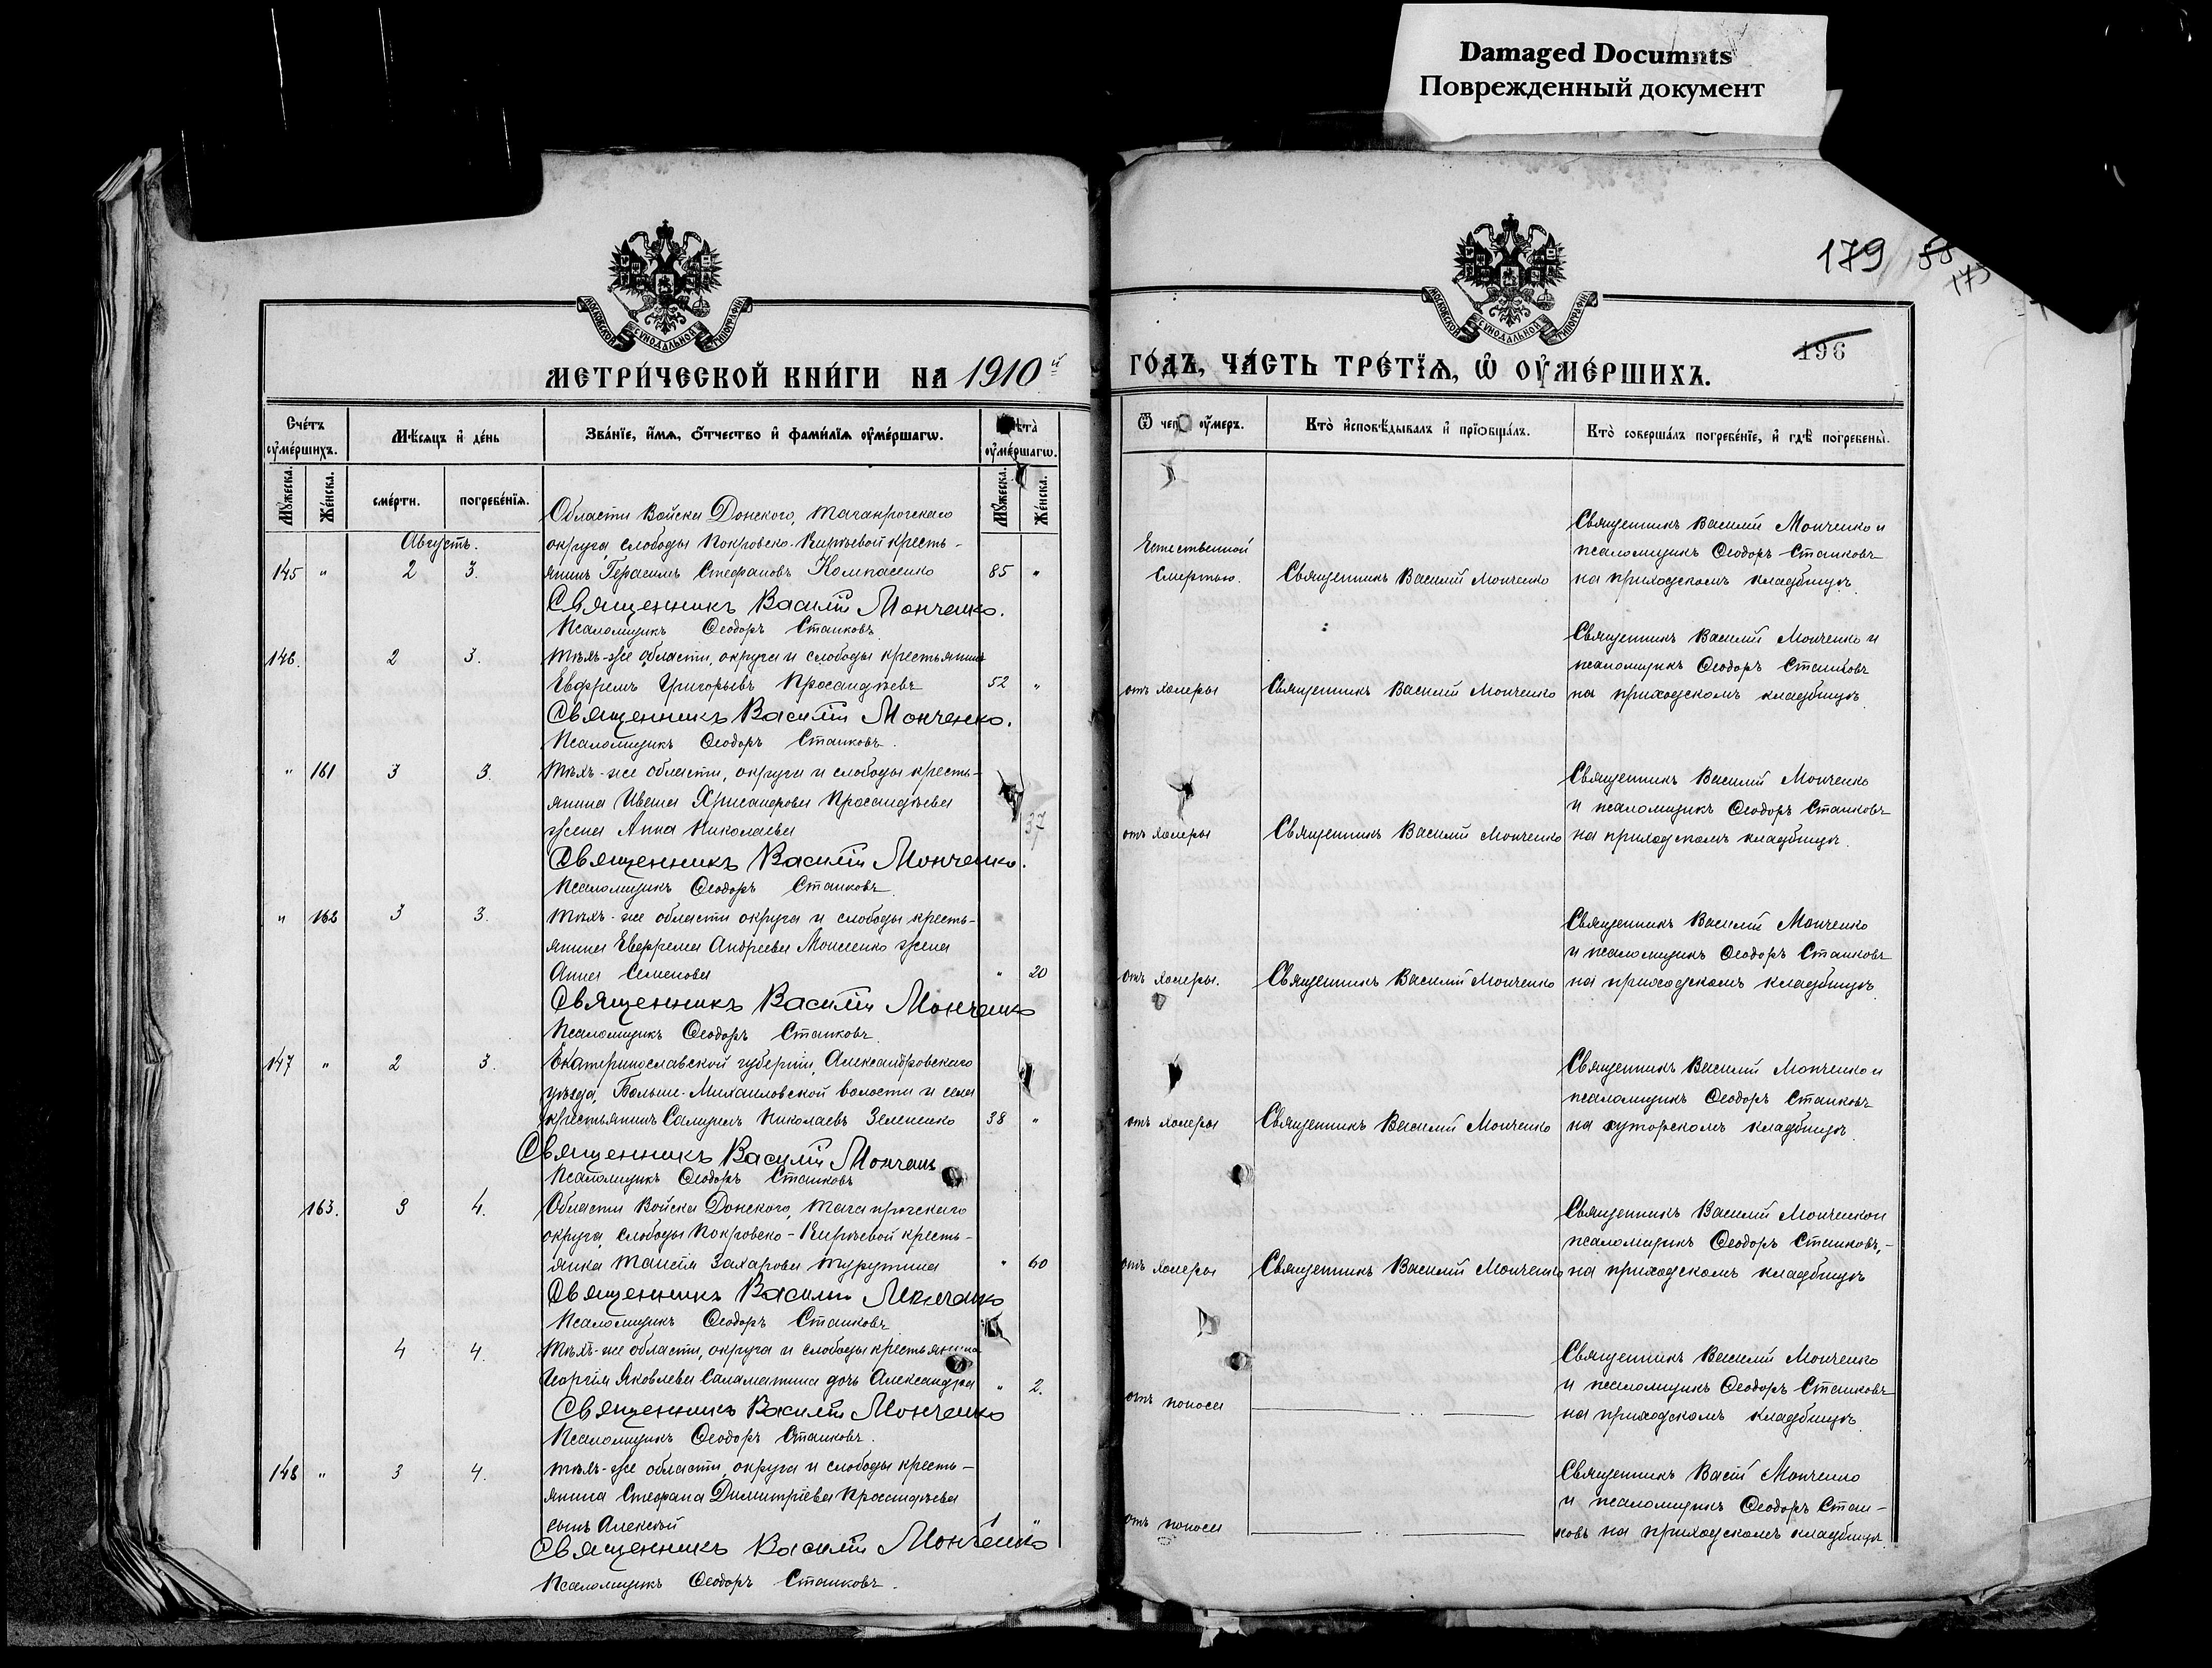 Damaged Documnts
Поврежденный документ
179
196
МОСКОВСКОЙ СУНОДАЛЬНОЙ ТИПОГРАФІИ
МОСКОВСКОЙ СУНОДАЛЬНОЙ ТИПОГРАФІИ
МЕТРИ́ЧЕСКОЙ КНИ́ГИ НА 1910й
ГО́ДЪ, ЧА́СТЬ ТРЕ́ТЇѦ, Ѡ҆ ОУ҆МЕ́РШИХЪ.
Сче́тъ оу҆ме́ршихъ.
Мѣ́сяцъ и҆ де́нь
Зва́нїе, и҆́мѧ, ѻ҆́тчество и҆ фами́лїѧ оу҆ме́ршагѡ.
Лѣ́та оу҆ме́ршагѡ.
Ѿ чегѡ̀ оу҆́меръ.
Кто̀ и҆сповѣ́дывалъ и҆ прїѡбща́лъ.
Кто̀ соверша́лъ погребе́нїе, и҆ гдѣ̀ погребены̀.
Му́жеска.
Же́нска.
сме́рти.
погребе́нїя.
Му́жеска.
Же́нска.
Августъ.
Области Войска Донского, Таганрогскаго
округа, слободы Покровско-Киреевой кресть-
145 " 2 3. янинъ Герасимъ Стефановъ Компасенко 85 "
Священникъ Василій Монченко.
Псаломщикъ Ѳеодоръ Станковъ.
Естественной
смертью.
Священникъ Василій Монченко
Священникъ Василій Монченко и
псаломщикъ Ѳеодоръ Станковъ
на приходскомъ кладбищѣ.
146. 2 3. Тѣхъ-же области, округа и слободы крестьянинъ
Евфремъ Григорьевъ Просандѣевъ 52 "
Священникъ Василій Монченко.
Псаломщикъ Ѳеодоръ Станковъ.
отъ холеры
Священникъ Василій Монченко
Священникъ Василій Монченко и
псаломщикъ Ѳеодоръ Станковъ
на приходскомъ кладбищѣ.
" 161 3 3. Тѣхъ-же области, округа и слободы кресть-
янина Ивана Хрисанфова Просандѣева
жена Анна Николаева 37
Священникъ Василій Монченко.
Псаломщикъ Ѳеодоръ Станковъ.
отъ холеры
Священникъ Василій Монченко
Священникъ Василій Монченко
и псаломщикъ Ѳеодоръ Станковъ
на приходскомъ кладбищѣ.
" 162 3 3. Тѣхъ-же области округа и слободы кресть-
янина Евфрема Андреева Моисеенко жена
Анна Семенова " 20
Священникъ Василій Монченко
Псаломщикъ Ѳеодоръ Станковъ.
отъ холеры.
Священникъ Василій Монченко
Священникъ Василій Монченко
и псаломщикъ Ѳеодоръ Станковъ
на приходскомъ кладбищѣ.
147 " 2 3. Екатеринославской губерніи, Александровскаго
уѣзда, Больше-Михаиловской волости и села
крестьянинъ Самуилъ Николаевъ Зелененко 38 "
Священникъ Василій Монченк
Псаломщикъ Ѳеодоръ Станковъ
отъ холеры
Священникъ Василій Монченко
Священникъ Василій Монченко и
псаломщикъ Ѳеодоръ Станковъ
на хуторскомъ кладбищѣ.
163. 3 4. Области Войска Донского, Таганрогскаго
округа, слободы Покровско-Киреевой кресть-
янка Таисія Захарова Турутина " 60
Священникъ Василій Монченко
Псаломщикъ Ѳеодоръ Станковъ
отъ холеры
Священникъ Василій Монченко
Священникъ Василій Монченкои
псаломщикъ Ѳеодоръ Станковъ,-
на приходскомъ кладбищѣ
4 4. Тѣхъ-же области, округа и слободы крестьянина
Георгія Яковлева Саламатина дочь Александра " 2.
Священникъ Василій Монченко
Псаломщикъ Ѳеодоръ Станковъ.
отъ поноса
Священникъ Василій Монченко
и псаломщикъ Ѳеодоръ Станковъ
на приходскомъ кладбищѣ.
148 " 3 4. Тѣхъ-же области, округа и слободы кресть-
янина Стефана Димитріева Просандѣева
сынъ Алексѣй 1 "
Священникъ Василій Монченко
Псаломщикъ Ѳеодоръ Станковъ.
отъ поноса
Священникъ Васій Монченко
и псаломщикъ Ѳеодоръ Стан-
ковъ на приходскомъ кладбищѣ.